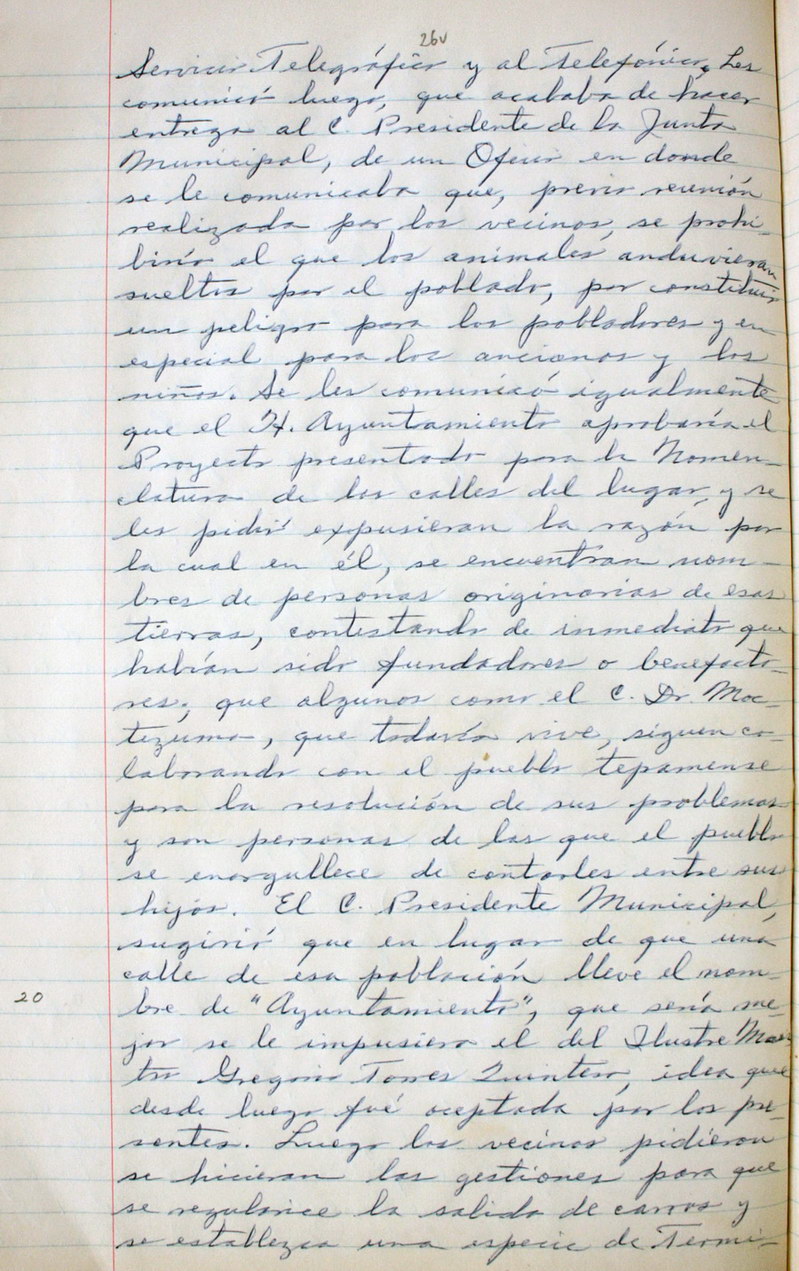 26v
Servicio Telegráfico y al Telefónico. Les
comunicó luego, que acababa de hacer
entrega al C. Presidente de la Junta
Municipal, de un Oficio en donde
se le comunicaba que, previa reunión
realizada por los vecinos, se prohi-
biría el que los animales anduvieran
sueltos por el poblado, por constituir
un peligro para los pobladores y en
especial para los ancianos y los
niños. Se les comunicó igualmente
que el H. Ayuntamiento aprobaría el
Proyecto presentado para la Nomen-
clatura de las calles del lugar, y se
les pidió expusieran la razón por
la cual en él, se encuentran nom-
bres de personas originarias de esas
tierras, contestando de inmediato que
habían sido fundadores o benefacto-
res; que algunos como el C. Dr. Moc-
tezuma, que todavía vive, siguen co-
laborando con el pueblo tepamense
para la resolución de sus problemas
y son personas de las que el pueblo
se enorgullece de contarles entre sus
hijos. El C. Presidente Municipal,
sugirió que en lugar de que una
calle de esa población lleve el nom-
20
bre de "Ayuntamiento", que sería me-
jor se le impusiera el del Ilustre Maes-
tro Gregorio Torres Quintero, idea que
desde luego fué aceptada por los pre-
sentes. Luego los vecinos pidieron
se hicieran las gestiones para que
se regularice la salida de carros y
se establezca una especie de Termi-